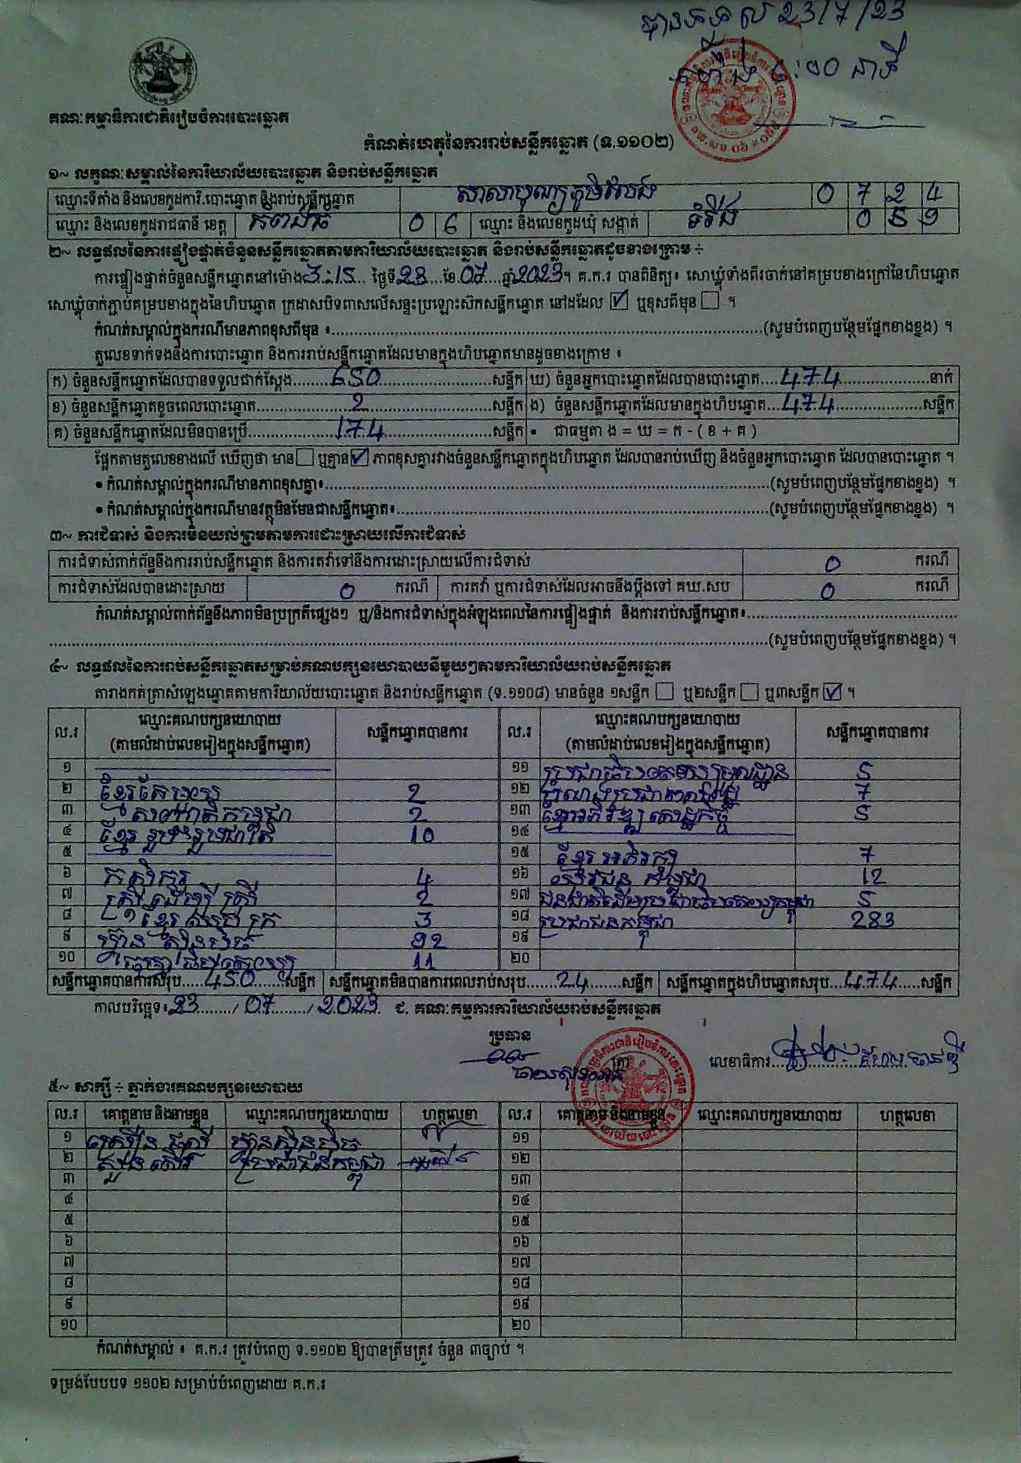 23/7/23
គណៈកម្មាធិការជាតិរៀបចំការបោះឆ្នោត
កំណត់ហេតុនៃការរាប់សន្លឹកឆ្នោត (ទ.១១០២)
១~ លក្ខណៈសម្គាល់នៃការិយាល័យបោះឆ្នោត និងរាប់សន្លឹកឆ្នោត
ឈ្មោះទីតាំង និងលេខកូដការិ.បោះឆ្នោត និងរាប់សន្លឹកឆ្នោត 0 7 2 4
ឈ្មោះ និងលេខកូដរាជធានី ខេត្ត កំពង់ធំ 0 6 ឈ្មោះ និងលេខកូដឃុំ សង្កាត់ ទំរីង 0 5 9
២~ លទ្ធផលនៃការផ្ទៀងផ្ទាត់ចំនួនសន្លឹកឆ្នោតតាមការិយាល័យបោះឆ្នោត និងរាប់សន្លឹកឆ្នោតដូចខាងក្រោម ÷
ការផ្ទៀងផ្ទាត់ចំនួនសន្លឹកឆ្នោតនៅម៉ោង 3:15 ថ្ងៃទី 23 ខែ 07 ឆ្នាំ 2023។ គ.ក.រ បានពិនិត្យ៖ សោឃ្លុំទាំងពីរចាក់នៅគម្របខាងក្រៅនៃហិបឆ្នោត
សោឃ្លុំចាក់ភ្ជាប់គម្របខាងក្នុងនៃហិបឆ្នោត ក្រដាសបិទពាសលើសន្ទះប្រឡោះស៊កសន្លឹកឆ្នោត នៅដដែល ☑ ឬខុសពីមុន ☐ ។
កំណត់សម្គាល់ក្នុងករណីមានភាពខុសពីមុន ៖ (សូមបំពេញបន្ថែមផ្នែកខាងខ្នង) ។
តួលេខទាក់ទងនឹងការបោះឆ្នោត និងការរាប់សន្លឹកឆ្នោតដែលមានក្នុងហិបឆ្នោតមានដូចខាងក្រោម ៖
ក) ចំនួនសន្លឹកឆ្នោតដែលបានទទួលជាក់ស្តែង 650 សន្លឹក ឃ) ចំនួនអ្នកបោះឆ្នោតដែលបានបោះឆ្នោត 474 នាក់
ខ) ចំនួនសន្លឹកឆ្នោតខូចពេលបោះឆ្នោត 2 សន្លឹក ង) ចំនួនសន្លឹកឆ្នោតដែលមានក្នុងហិបឆ្នោត 474 សន្លឹក
គ) ចំនួនសន្លឹកឆ្នោតដែលមិនបានប្រើ 174 សន្លឹក • ជាធម្មតា ង = ឃ = ក - ( ខ + គ )
ផ្អែកតាមតួលេខខាងលើ ឃើញថា មាន ☐ ឬគ្មាន ☑ ភាពខុសគ្នារវាងចំនួនសន្លឹកឆ្នោតក្នុងហិបឆ្នោត ដែលបានរាប់ឃើញ និងចំនួនអ្នកបោះឆ្នោត ដែលបានបោះឆ្នោត ។
• កំណត់សម្គាល់ក្នុងករណីមានភាពខុសគ្នា៖ (សូមបំពេញបន្ថែមផ្នែកខាងខ្នង) ។
• កំណត់សម្គាល់ក្នុងករណីមានវត្ថុមិនមែនជាសន្លឹកឆ្នោត៖ (សូមបំពេញបន្ថែមផ្នែកខាងខ្នង) ។
៣~ ការជំទាស់ និងការមិនយល់ព្រមតាមការដោះស្រាយលើការជំទាស់
ការជំទាស់ពាក់ព័ន្ធនឹងការរាប់សន្លឹកឆ្នោត និងការតវ៉ាទៅនឹងការដោះស្រាយលើការជំទាស់ 0 ករណី
ការជំទាស់ដែលបានដោះស្រាយ 0 ករណី ការតវ៉ា ឬការជំទាស់ដែលអាចនឹងប្តឹងទៅ គឃ.សប 0 ករណី
កំណត់សម្គាល់ពាក់ព័ន្ធនឹងភាពមិនប្រក្រតីផ្សេងៗ ឬ/និងការជំទាស់ក្នុងអំឡុងពេលនៃការផ្ទៀងផ្ទាត់ និងការរាប់សន្លឹកឆ្នោត៖
(សូមបំពេញបន្ថែមផ្នែកខាងខ្នង) ។
៤~ លទ្ធផលនៃការរាប់សន្លឹកឆ្នោតសម្រាប់គណបក្សនយោបាយនីមួយៗតាមការិយាល័យរាប់សន្លឹកឆ្នោត
តារាងកត់ត្រាសំឡេងឆ្នោតតាមការិយាល័យបោះឆ្នោត និងរាប់សន្លឹកឆ្នោត (ទ.១១០៨) មានចំនួន ១សន្លឹក ☐ ឬ២សន្លឹក ☐ ឬ៣សន្លឹក ☑ ។
ល.រ ឈ្មោះគណបក្សនយោបាយ (តាមលំដាប់លេខរៀងក្នុងសន្លឹកឆ្នោត) សន្លឹកឆ្នោតបានការ ល.រ ឈ្មោះគណបក្សនយោបាយ (តាមលំដាប់លេខរៀងក្នុងសន្លឹកឆ្នោត) សន្លឹកឆ្នោតបានការ
១ ១១ 5
២ 2 ១២ 7
៣ 2 ១៣ 5
៤ ខ្មែរ រួបរួមជាតិ 10 ១៤
៥ ១៥ 7
៦ 4 ១៦ យុវជន កម្ពុជា 12
៧ ស្ត្រី ដើម្បី ស្ត្រី 2 ១៧ 5
៨ 3 ១៨ ប្រជាជនកម្ពុជា 283
៩ ហ៊្វុនស៊ិនប៉ិច 92 ១៩
១០ 11 ២០
សន្លឹកឆ្នោតបានការសរុប 450 សន្លឹក សន្លឹកឆ្នោតមិនបានការពេលរាប់សរុប 24 សន្លឹក សន្លឹកឆ្នោតក្នុងហិបឆ្នោតសរុប 474 សន្លឹក
កាលបរិច្ឆេទ៖ 23 / 07 / 2023 ជ. គណៈកម្មការការិយាល័យរាប់សន្លឹកឆ្នោត
ប្រធាន
លេខាធិការ
៥~ សាក្សី ÷ ភ្នាក់ងារគណបក្សនយោបាយ
ល.រ គោត្តនាម និងនាមខ្លួន ឈ្មោះគណបក្សនយោបាយ ហត្ថលេខា ល.រ គោត្តនាម និងនាមខ្លួន ឈ្មោះគណបក្សនយោបាយ ហត្ថលេខា
១ ហ៊្វុនស៊ិនប៉ិច ១១
២ ប្រជាជនកម្ពុជា ១២
៣ ១៣
៤ ១៤
៥ ១៥
៦ ១៦
៧ ១៧
៨ ១៨
៩ ១៩
១០ ២០
កំណត់សម្គាល់ ៖ គ.ក.រ ត្រូវបំពេញ ទ.១១០២ ឱ្យបានត្រឹមត្រូវ ចំនួន ៣ច្បាប់ ។
ទម្រង់បែបបទ ១១០២ សម្រាប់បំពេញដោយ គ.ក.រ